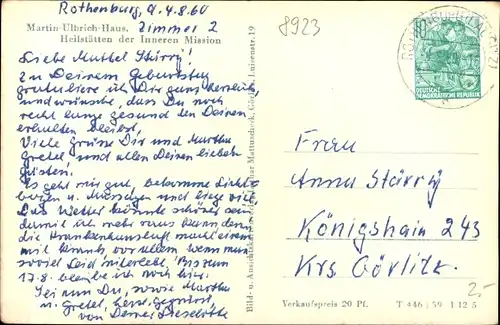 Rothenburg, d. 4.8.60
Martin-Ulbrich-Haus, Zimmer 2
Heilstätten der Inneren Mission
8923
Liebe Muttel Stürry!
Zu Deinem Geburtstag
gratuliere ich Dir ganz herzlich,
und wünsche, dass Du noch
recht lange gesund den Deinen
erhalten bleibst.
Viele Grüsse Dir und Martha
Gretel, und allen Deinen lieben
Gästen.
Es geht mir gut, bekomme Licht-
bogen u. Massagen und liege viel
Das Wetter könnte schöner sein
damit ich mehr raus kann, denn
die Krankenhausluft macht einem
mit krank, vor allem wenn man
soviel Leid miterlebt. Bis zum
13.8. bleibe ich noch hier.
Sei nun Du, sowie Martha
u. Gretel, herzl. gegrüsst,
von Deiner Lieselotte
Bild- u. Ansichtskarten-Verlag Lothar Mattuscheck, Görlitz, Luisenstr. 19
10
DEUTSCHE
DEMOKRATISCHE REPUBLIK
Frau
Anna Stürry
Königshain 243
Krs Görlitz
2.-
Verkaufspreis 20 Pf. T 446/59 I 12 5